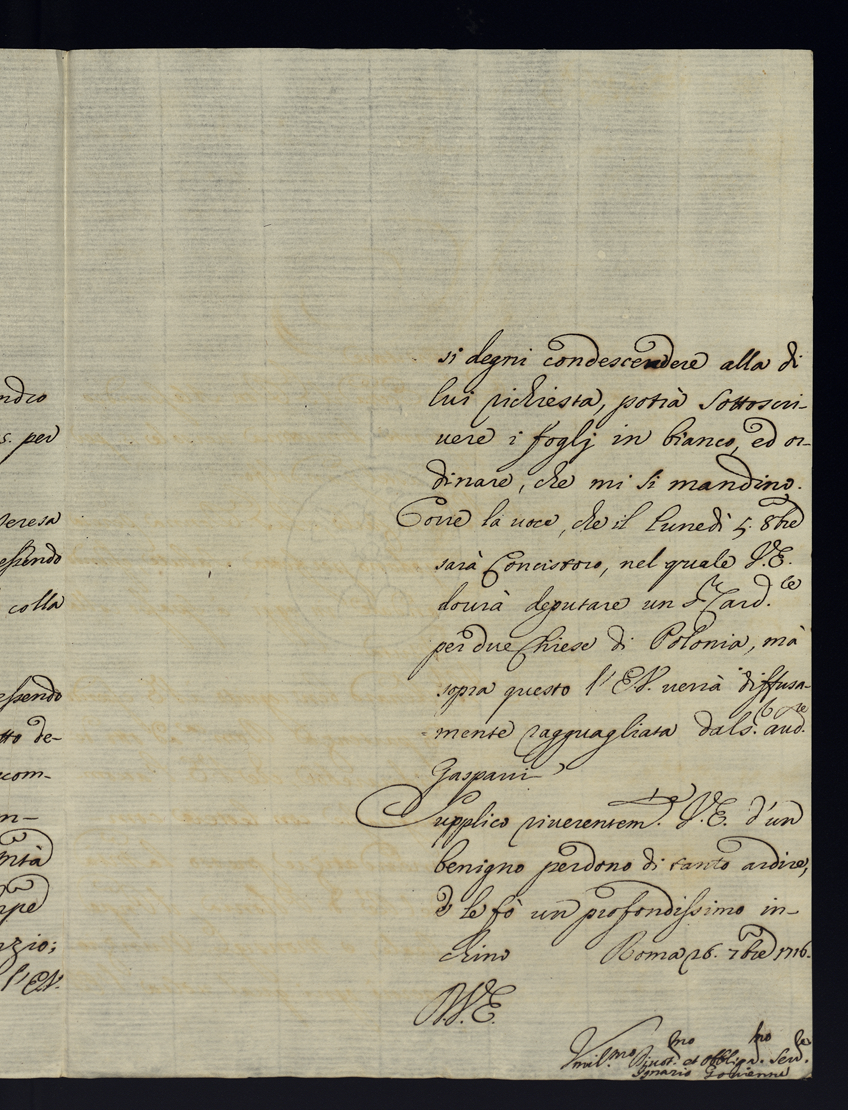 ndro
s. per
teresa
essendo
colla
essendo
tto de-
com-
n-
ntà
rpe
nzio;
l'E.V.
si degni condescendere alla di
lui richiesta, potrà sottoscri-
vere i foglj in bianco, ed or-
dinare, che mi si mandino.
Corre la voce, che il Lunedì 5. 8bre
sarà Concistoro, nel quale V.E.
dovrà deputare un Sr Card.le
per due Chiese di Polonia, mà
sopra questo l'E.V. verrà diffusa-
mente ragguagliata dal S. aud.re
Gasparri
Supplico riverentem.te V.E. d'un
benigno perdono di tanto ardire,
e le fò un profondissimo in-
chino Roma 26. 7bre 1716.
D.V.E.
Vmil.mo Divot.mo et Obblig.mo Serv.re
Ignazio